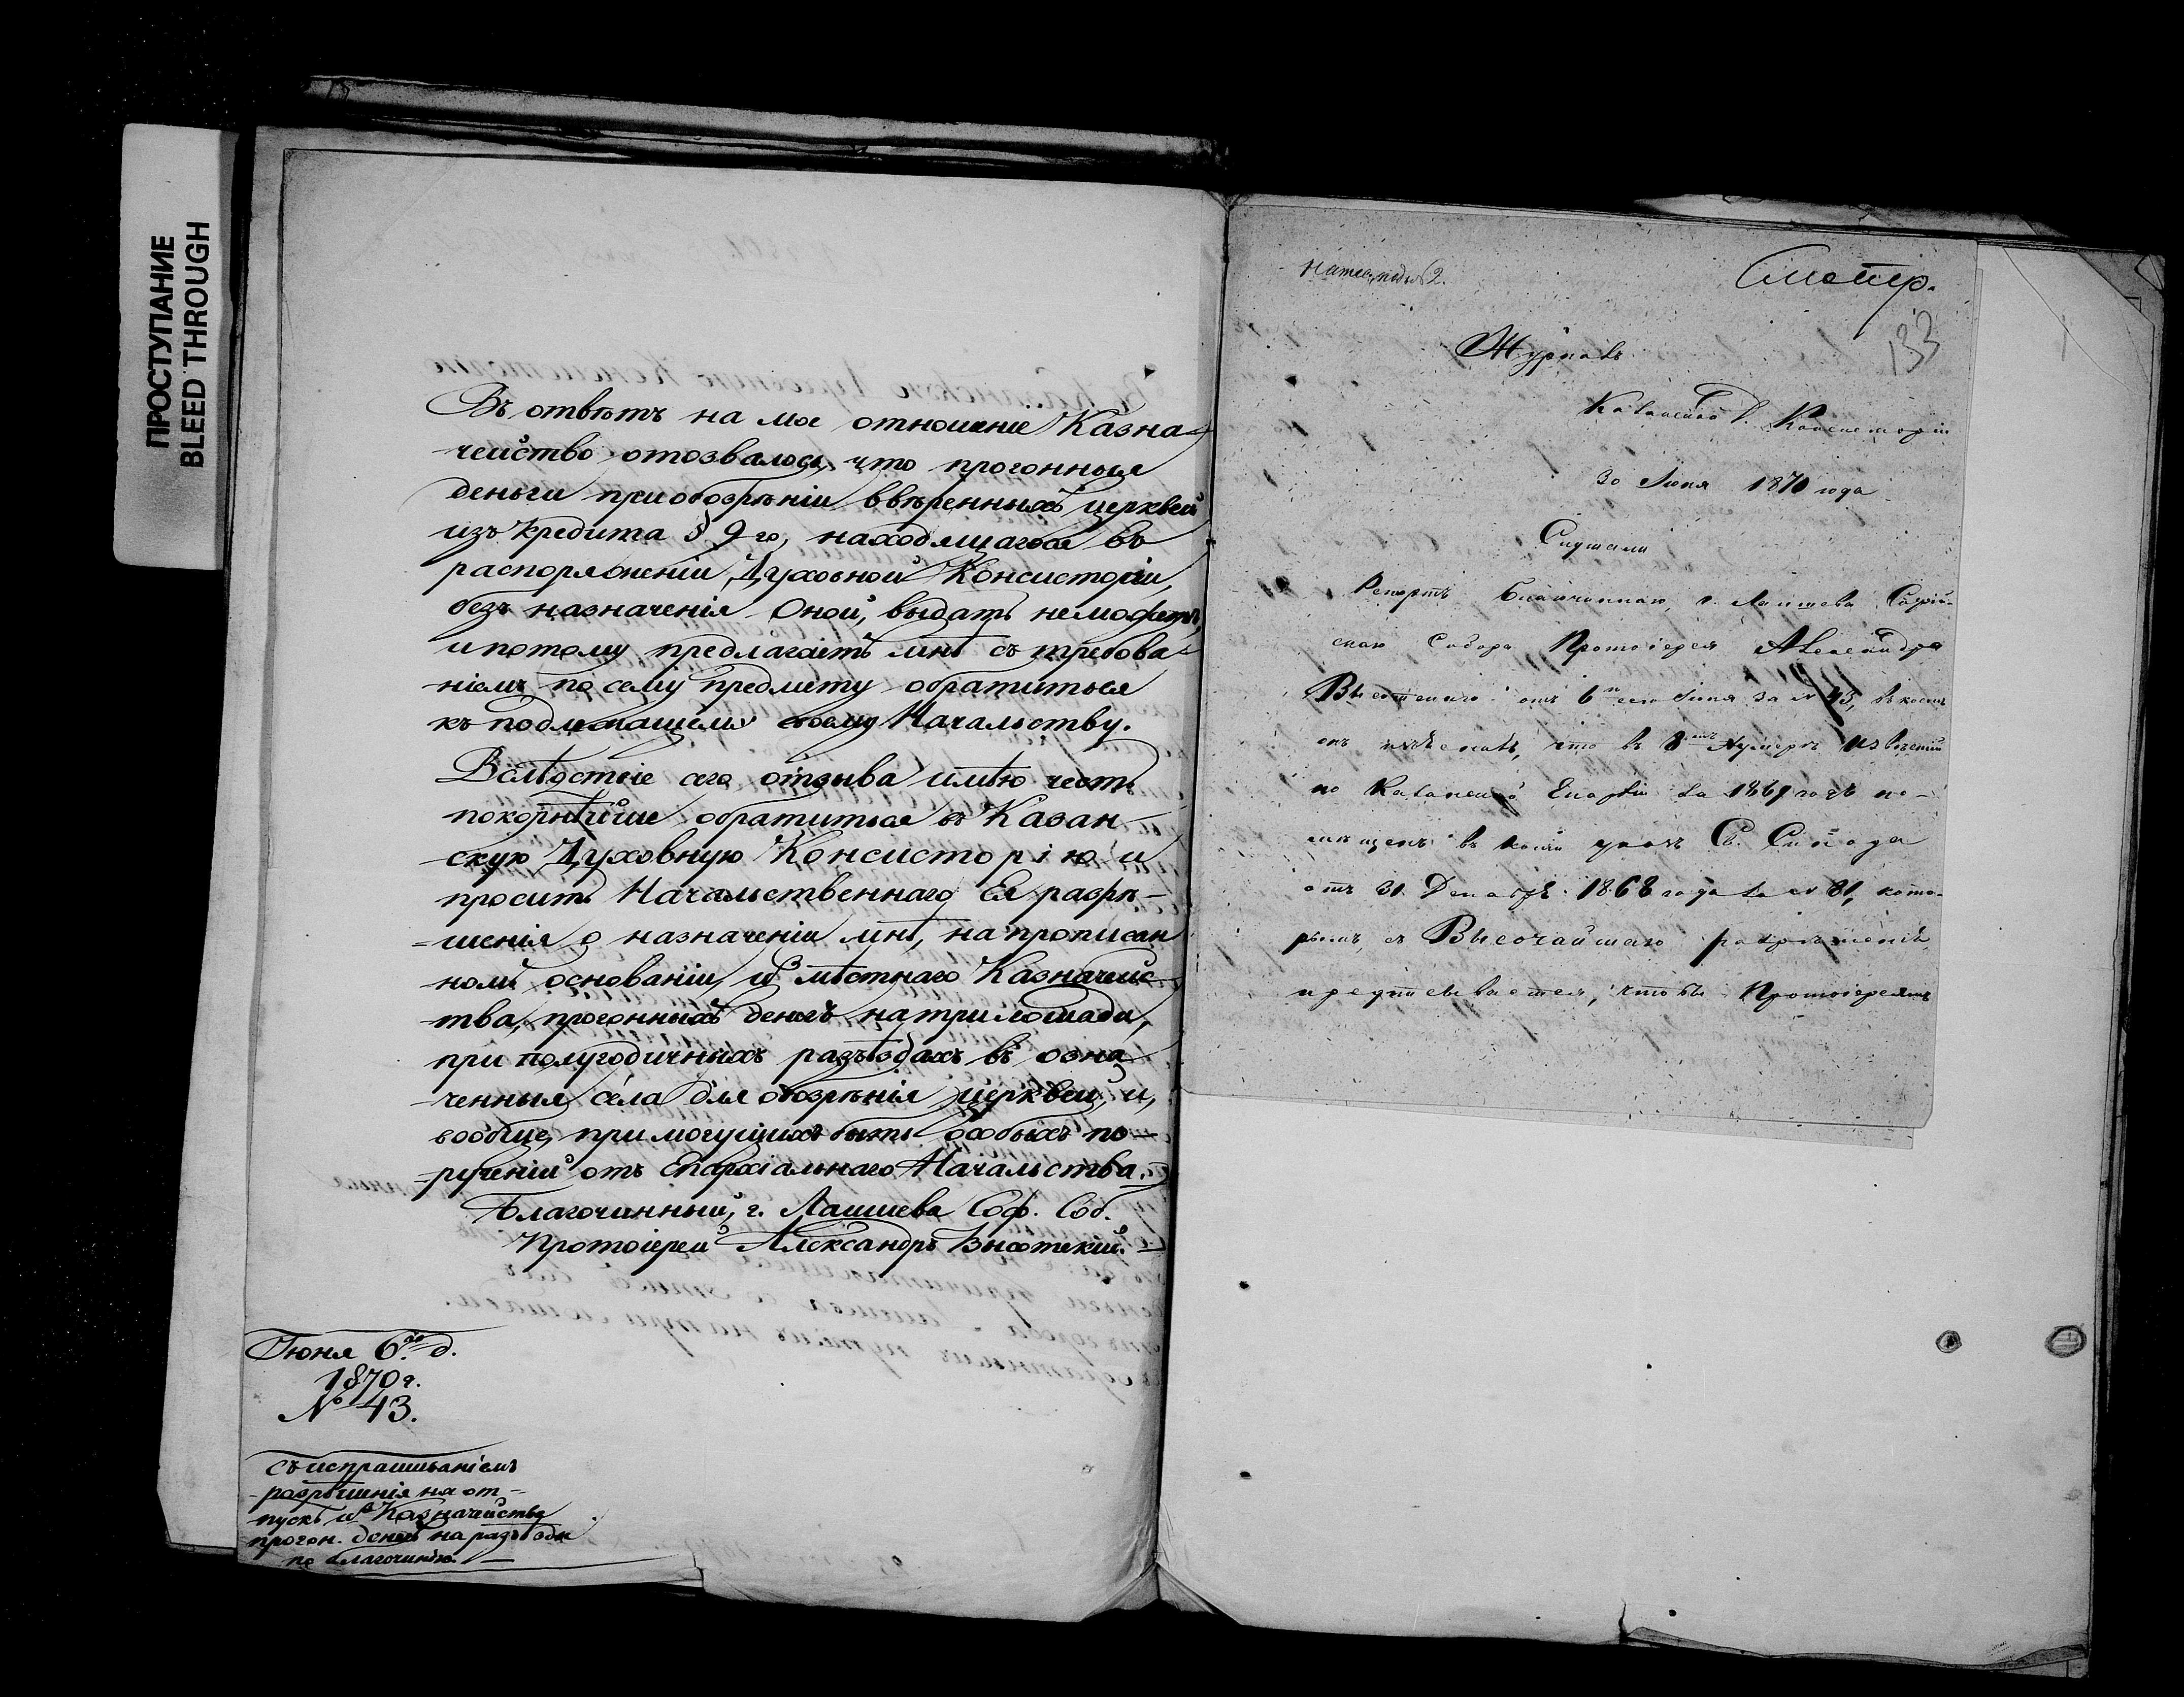 ПРОСТУПАНИЕ
BLEED THROUGH
Въ отвѣтъ на мое отношеніе Казна-
чейство отозвалось, что прогонныя
деньги при обозрѣніи ввѣренныхъ церквей
изъ кредита § 9го, находящагося въ
распоряженіи Духовной Консисторіи,
безъ назначенія Оной, выдать неможетъ,
и потому предлагаетъ мнѣ съ требова-
ніемъ по сему предмету обратиться
къ подлежащему своему Начальству.
Вслѣдствіе сего отзыва имѣю честь
покорнѣйше обратиться въ Казан-
скую Духовную Консисторію и
просить Начальственнаго Ея разрѣ-
-шенія о назначеніи мнѣ, на прописан
номъ основаніи, изъ мѣстнаго Казначейс-
тва, прогонныхъ денегъ на три лошади,
при полугодичныхъ разъѣздахъ въ озна-
-ченныя сёла для обозрѣнія церквей, и,
вообще, при могущихъ быть особыхъ по-
-рученій отъ Епархіальнаго Начальства.
Благочинный, г. Лаишева Соф. Соб.
Протоіерей Александръ Высотскій.
Іюня 6го д.
1870 г.
№ 43.
Съ испрашиваніемъ
разрѣшенія на от-
пускъ изъ Казначейства
прогон. денегъ на разъѣзды
по благочинію.
Смотр.
133
Журналъ
Казанской Д. Консисторіи
30 Іюня 1870 года
Слушали
Репортъ Благочиннаго, г. Лаишева Софій-
скаго Собора Протоіерея Александра
Высотскаго отъ 6го сего Іюня за № 43, въ коемъ
онъ изъяснилъ, что въ 8мъ Нумерѣ Извѣстій
по Казанской Епархіи за 1869 годъ по-
мѣщенъ въ копіи указъ Св. Синода
отъ 31 Декабря 1868 года за № 81, кото-
рымъ, съ Высочайшаго разрѣшенія,
предписывается, чтобы Протоіереямъ